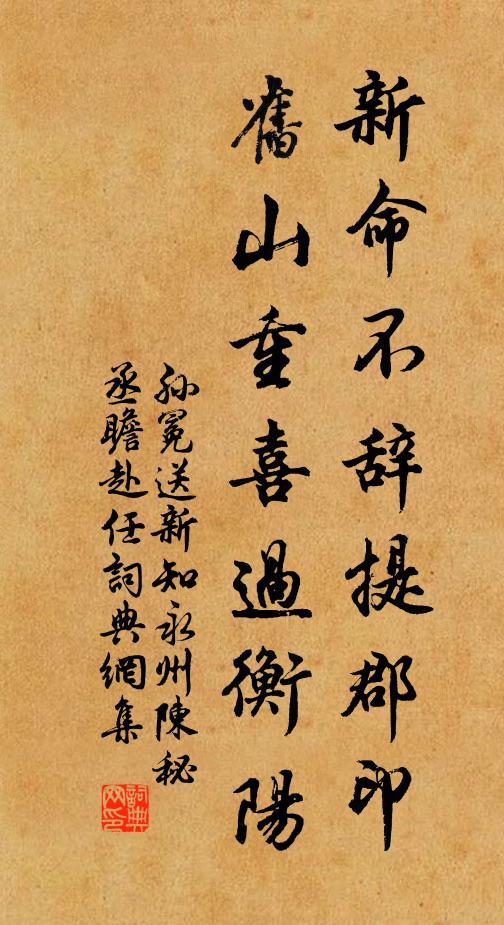 新命不辞提郡印
舊山重喜過衡陽
孫冕送新知永州陳秘
丞瞻赴任詞典網集
詞典網印